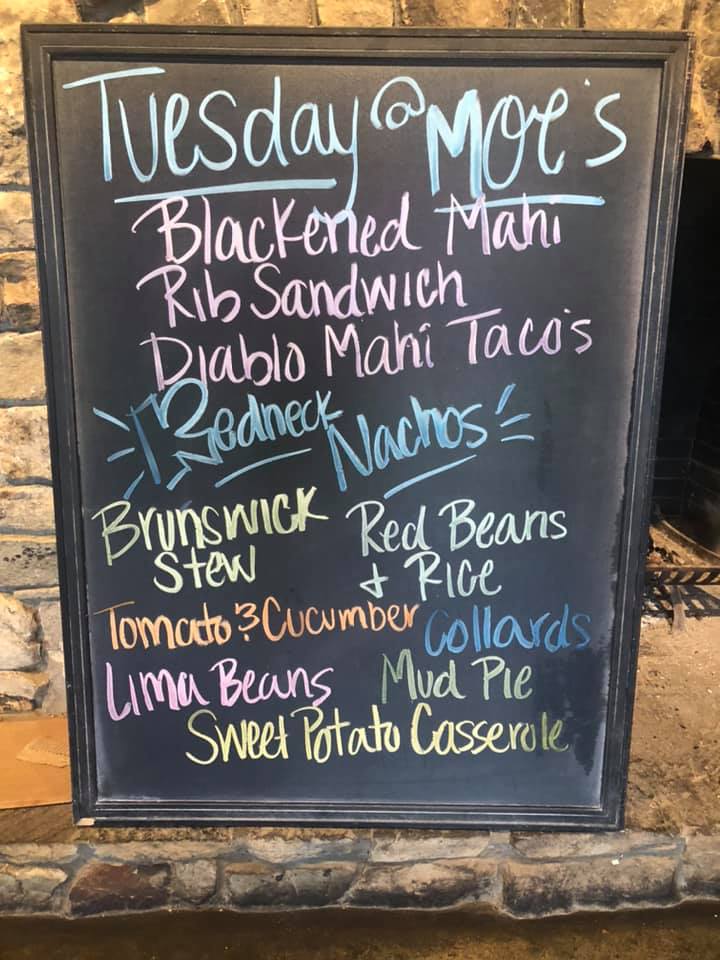 Tuesday @ Moe's
Blackened Mahi
Rib Sandwich
Diablo Mahi Taco's
Redneck Nachos
Brunswick Stew
Red Beans + Rice
Tomato & Cucumber
Collards
Lima Beans
Mud Pie
Sweet Potato Casserole